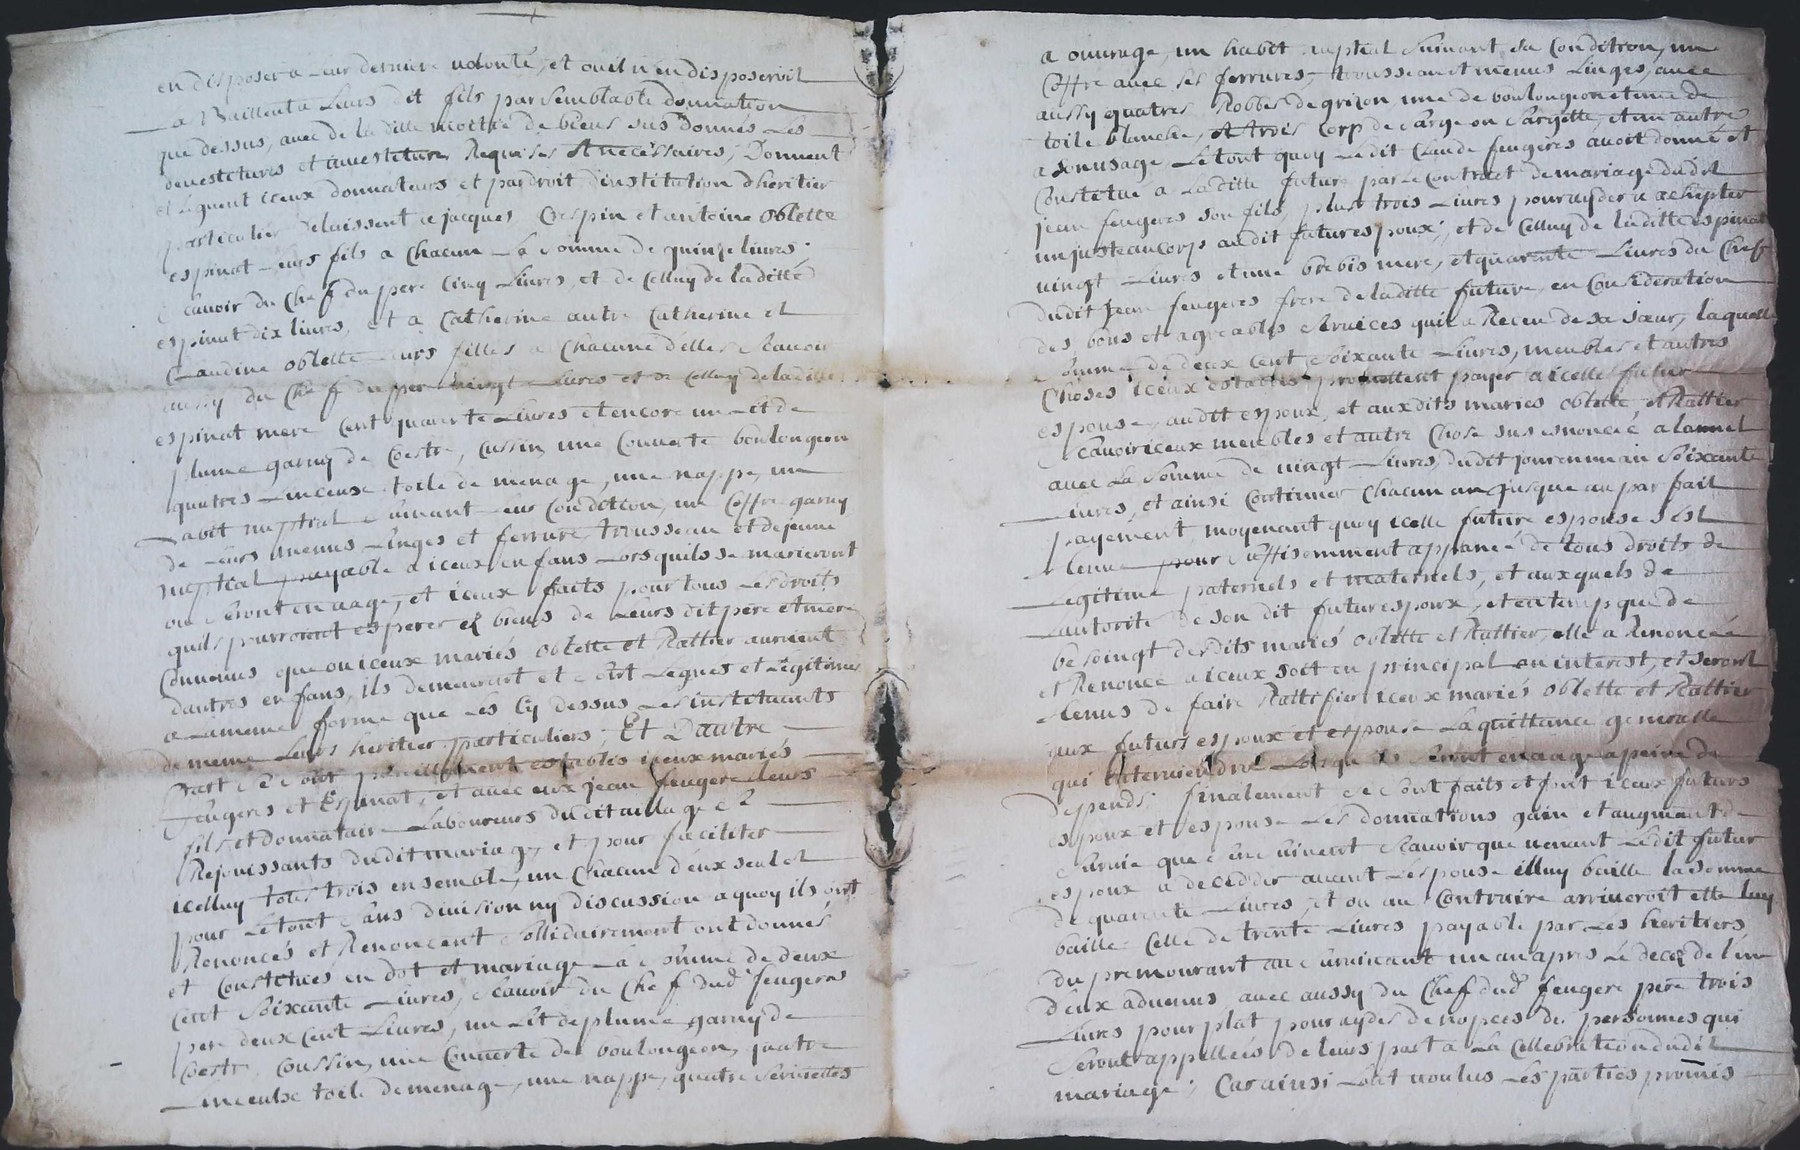 en disposer a leur derniere volonté, et ou il n'en disposeroit
La Baillent a leurs dit fils par semblable donnation
que dessus, avec de la ditte moitié de biens sus donnés les
devestitures et investiture Requises et necessaires, Donnent
et leguent iceux donnateurs et par droit d'institution d'heritier
particulier delaissent a jacques Crespin et antoine oblette
espinat leurs fils a Chacun La somme de quinze livres
scavoir du Chef du pere Cinq Livres, et de Celluy de laditte
espinat dix livres, et a Catherine autre Catherine et
Claudine oblette leurs filles a Chacune d'elles Scavoir
aussy du Chef du pere vingt Livres et de Celluy de laditte
espinat mere Cent quarente Livres et encore un lit de
plume garny de Coestre, Cussin, une Couverte boulongeon
quatres Linceuse toile de menage, une nappe, un
habit nuptial suivant leurs Condition, un Coffre garny
de leurs menus Linges et ferrure trousseau et dejeune
nuptial payable a iceux enfans Lorsquils se marieront
ou seront en aage, et iceux faits pour tous Les droits
quils pourroient esperer es biens de leurs dit pere et mere
Convenus que ou iceux mariés oblette et Rattier auroient
dautres enfans, ils demeurent et sont Legués et Legitimés
a la meme forme que Les Cy dessus Les instituants
de meme Leurs heritier particuliers. Et Dautre
Part se sont pareillement establis iceux mariés
feugeres et Espinat, et avec eux jean feugere leurs
fils et donnataire Laboureurs dudit village
Rejouissants dudit mariage, et pour faciliter
icelluy tous trois ensemble, un Chacun d'eux seul et
pour Le tout sans division ny discussion a quoy ils ont
Renoncés et Renoncent sollidairement ont donnés
et Constitués en dot et mariage La somme de deux
Cent Soixante Livres, scavoir du Chef dud' feugeres
pere deux Cent Livres, un Lit de plume garny de
Coestre Coussin, une Couverte de boulongeon, quatre
Linceulx toile de menage, une nappe, quatre serviettes
a ouvrage, un habit nuptial suivant sa Condition, un
Coffre avec ses ferrures, trousseau et menus Linges, avec
aussy quatres Robbes de grizon une de boulongeon et une de
toile blanche, et trois Corp de sarge ou sargette, et un autre
a son usage Le tout quoy Le dit Claude feugeres avoit donné et
Constitué a Laditte future par le Contract de mariage dudit
jean feugeres son fils, plus trois Livres pour ayder a achepter
un justeaucorp audit futur espoux; et de Celluy de laditte espinat
vingt Livres et une brebis mere, et quarente Livres du Chef
dudit jean feugeres frere de laditte future en Consideration
des bons et agreables services quil a Receu de sa soeur, laquelle
somme de deux Cent soixante Livres, meubles et autres
Choses iceux establis promettent payer a icelle future
espouse, audit espoux, et auxdits mariés oblette et Rattier
scavoir iceux meubles et autre Chose sus enoncée a lannel
avec La somme de vingt Livres, dudit jour en un an soixante
Livres, et ainsi Continuer Chacun an jusque au parfait
payement, moyenant quoy icelle future espouse s'est
tenue pour suffisemment appanée de tous droits de
Legitime paternels et maternels, et auxquels de
Lautorité de son dit futur espoux, et en temp que de
besoingt desdits mariés oblette et Rattier, elle a Renoncée
et Renonce a iceux soit en principal ou interest, et seront
tenus de faire Rattifier iceux mariés oblette et Rattier
aux futurs espoux et espouse La quittance generalle
qui interviendra Lorsque ils seront en aage a peine de
depends; finalement se sont faits et font iceux futurs
espoux et espouse Les donnations gain et augment de
survie que s'en suivent Scavoir que venant Ledit futur
espoux a decedder avant L'espouse illuy baille la somme
de quarente Livres, et ou au Contraire arriveroit elle luy
baille Celle de trente Livres payable par Les heritiers
du premourant au survivant un an apres Le deces de l'un
d'eux advenus, avec aussy du Chef dud' feugere pere trois
Livres pour plat pour aydes de nopces des personnes qui
seront appellées de leurs part a La Cellebration dudit
mariage; Car ainsi L'ont voulus Les parties promis